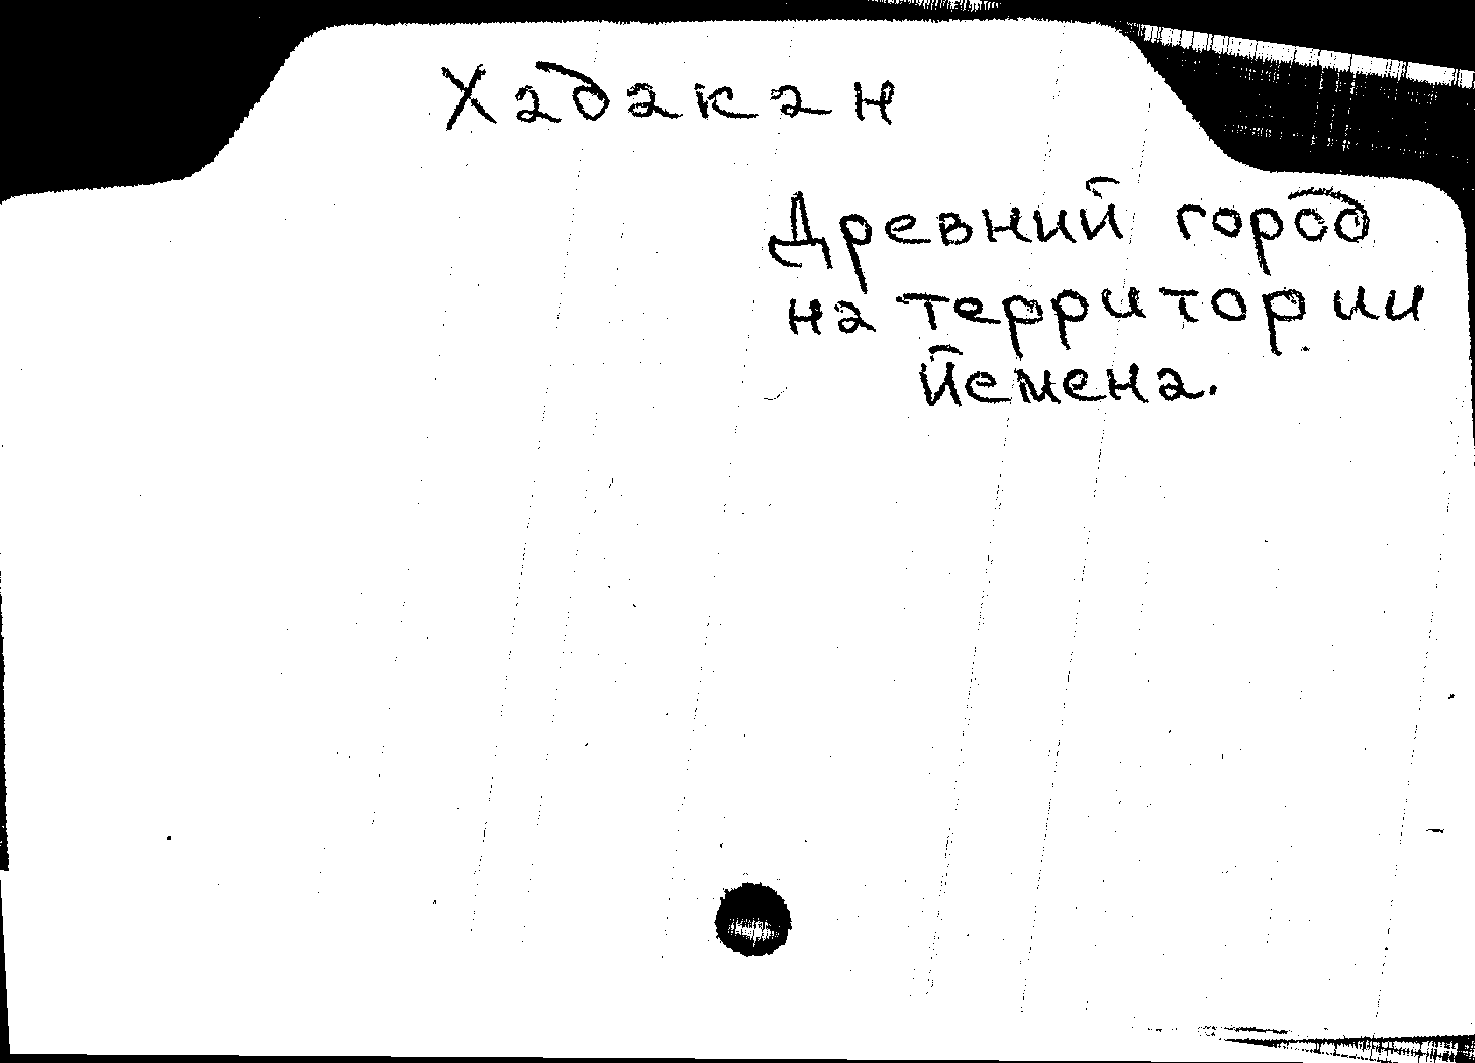 Хадакан
Древний город
на территории
Йемена.